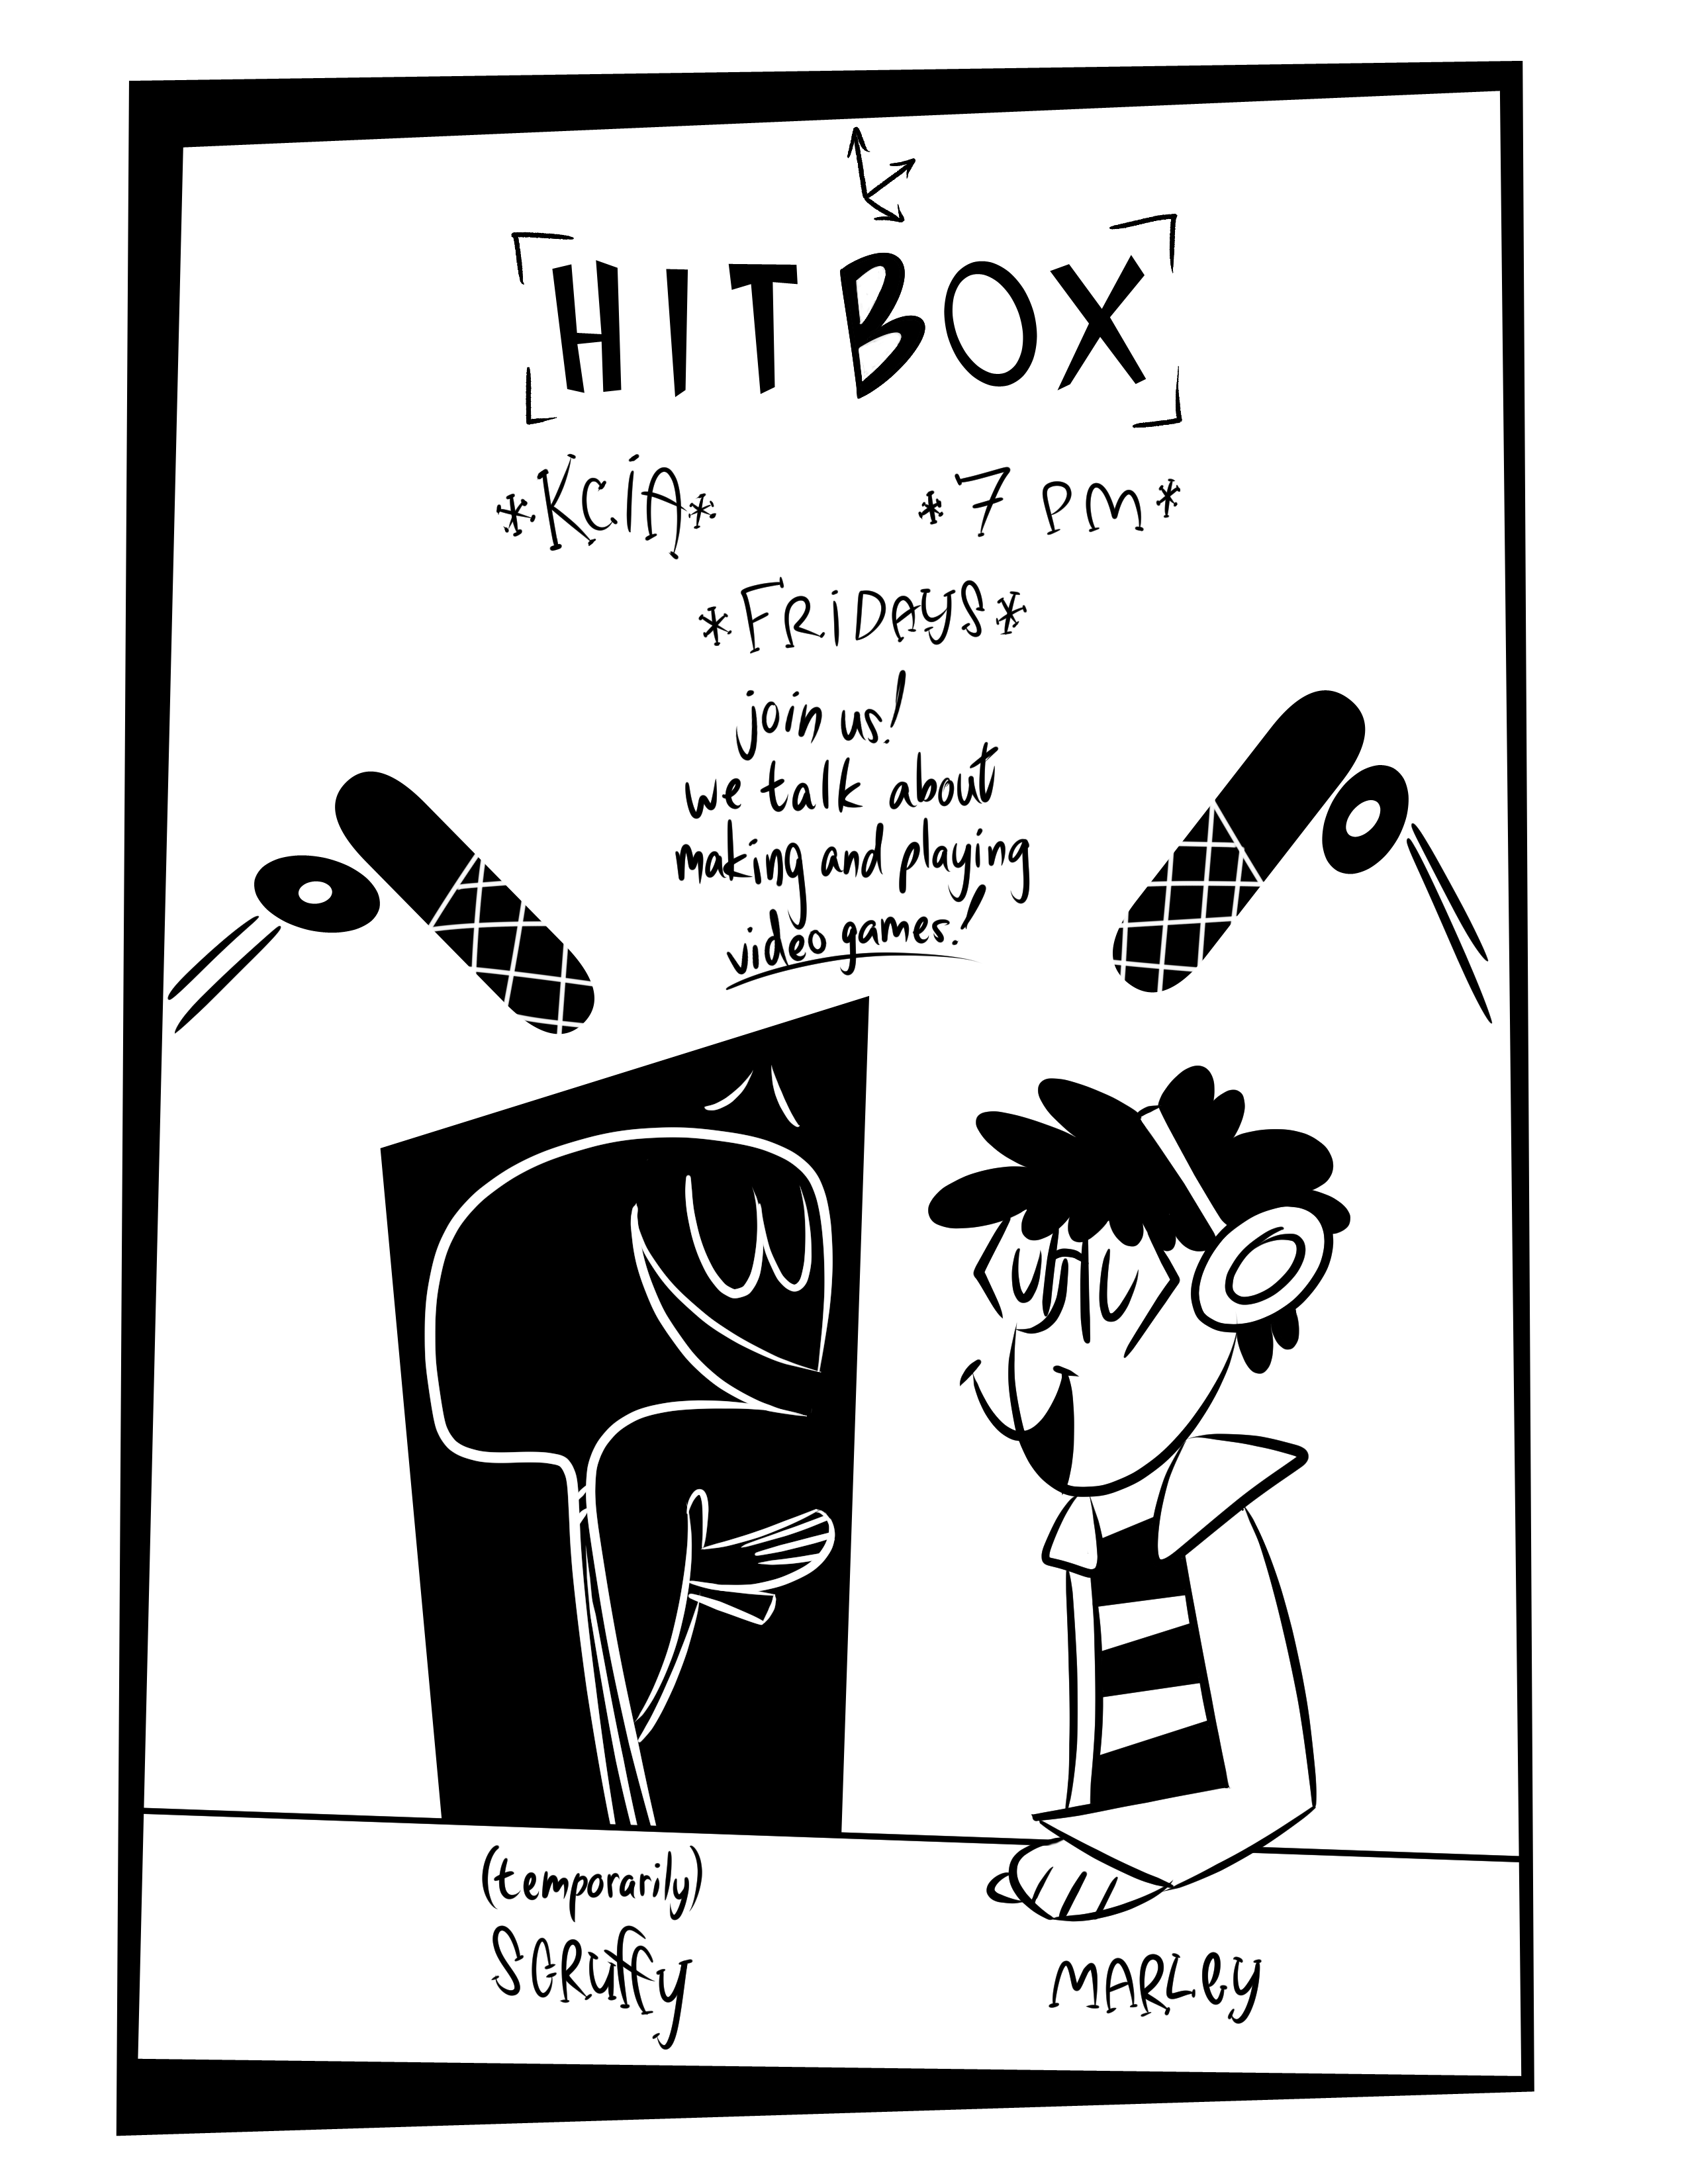 HITBOX
*KCIA* *7 PM*
*FRIDAYS*
join us!
we talk about
making and playing
video games!
(temporarily)
SCRUffy
MARLEy